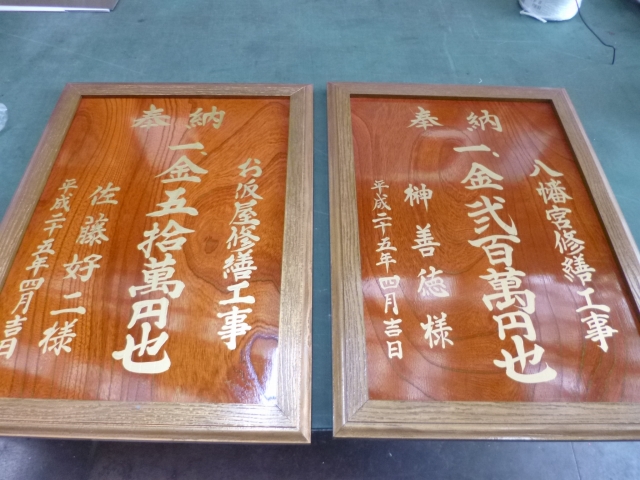 奉納
お仮屋修繕工事
一、金五拾萬円也
佐藤好二様
平成二十五年四月吉日
奉納
八幡宮修繕工事
一、金弐百萬円也
榊善徳様
平成二十五年四月吉日